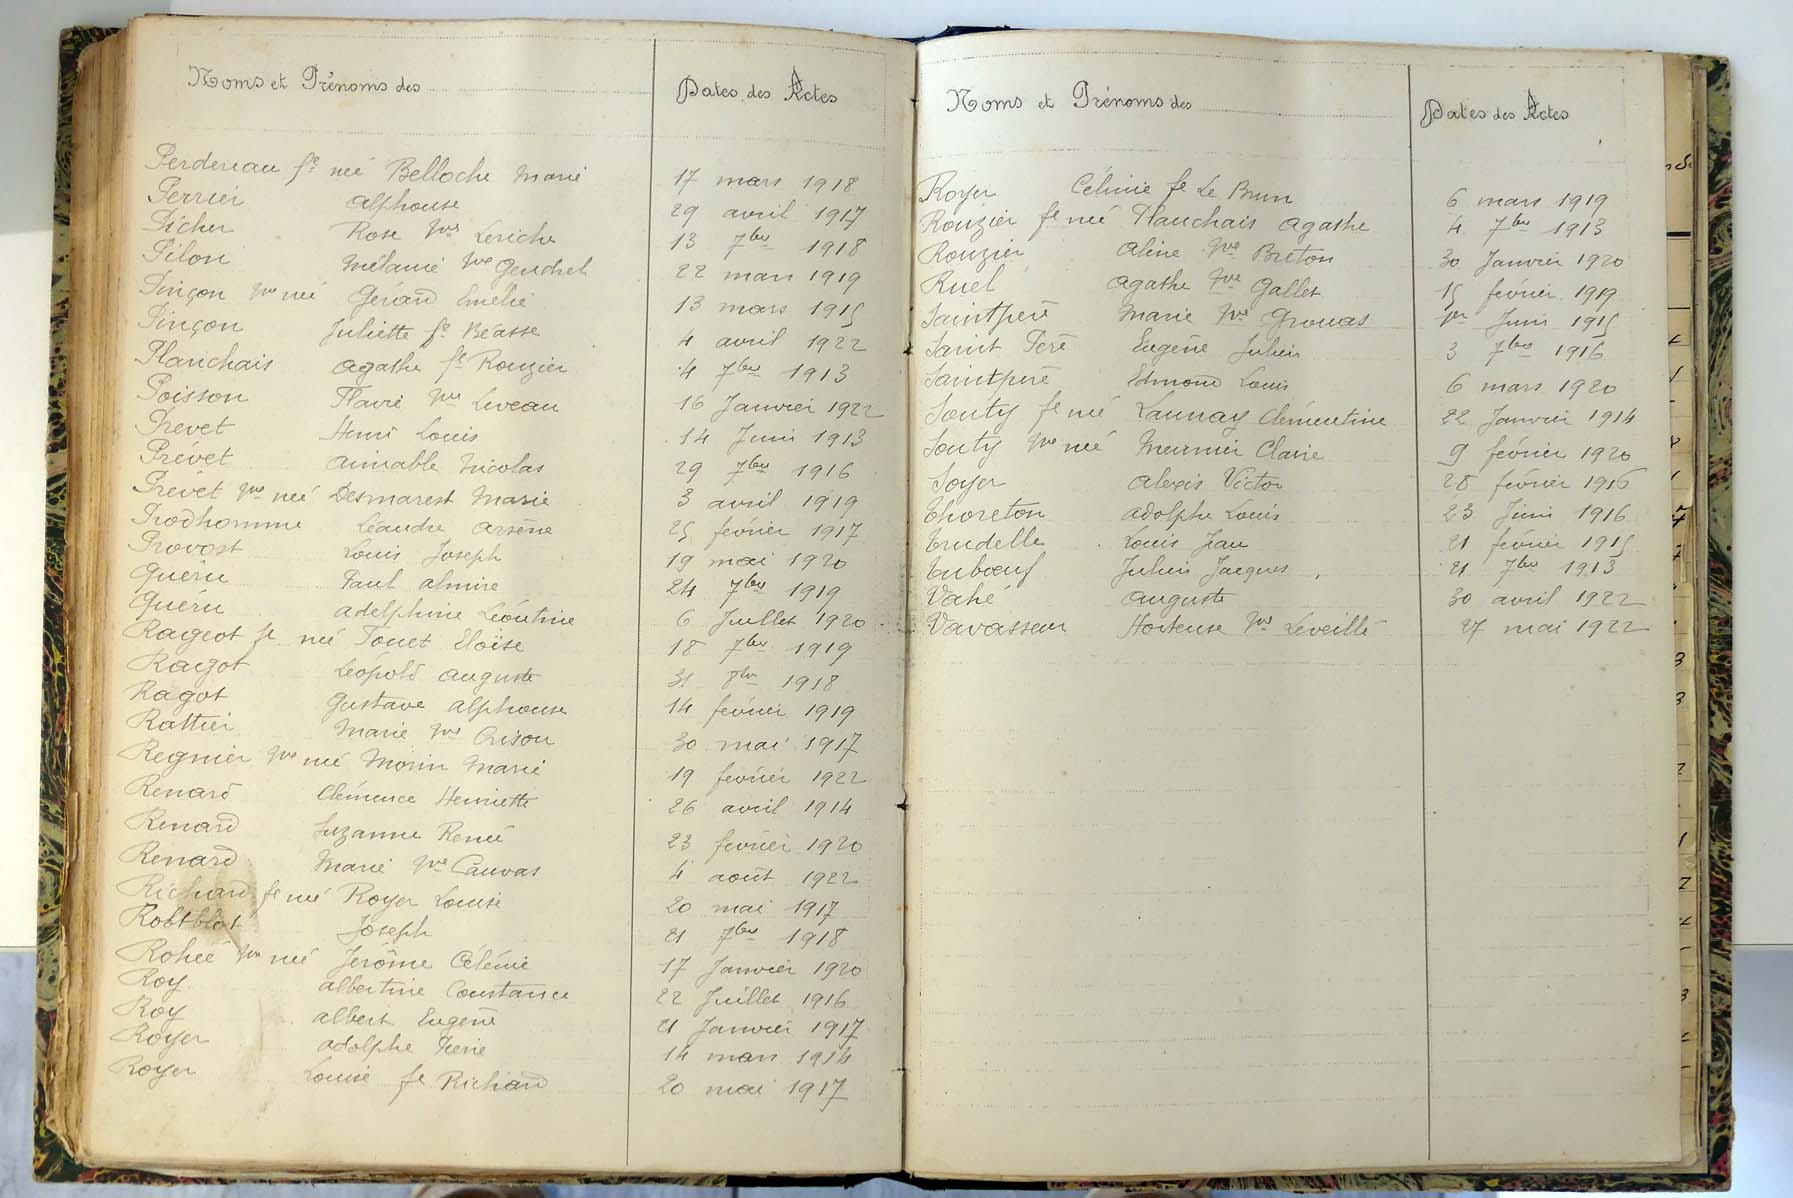 Noms et Prénoms des
Dates des Actes
Perdereau fe née Belloche Marie 17 mars 1918
Perrier Alphonse 29 avril 1917
Picher Rose Vve Leriche 13 7bre 1918
Pilon Mélanie Vve Gendret 22 mars 1919
Pinçon Vve née Gérard Emélie 13 mars 1915
Pinçon Juliette fe Béasse 4 avril 1922
Planchais Agathe fe Rouzier 4 7bre 1913
Poisson Flavie Vve Leveau 16 Janvier 1922
Prevet Henri Louis 14 Juin 1913
Prévet Aimable Nicolas 29 7bre 1916
Prévet Vve née Desmarest Marie 3 avril 1919
Prodhomme Léandre Arsène 25 février 1917
Provost Louis Joseph 19 mai 1920
Quéru Paul Almire 24 7bre 1919
Quéru Adelphine Léontine 6 Juillet 1920
Rageot fe née Touet Eloïse 18 7bre 1919
Ragot Léopold Auguste 31 8bre 1918
Ragot Gustave Alphonse 14 février 1919
Rattier Marie Vve Crison 30 mai 1917
Regnier Vve née Morin Marie 19 février 1922
Renard Clémence Henriette 26 avril 1914
Renard Suzanne Renée 23 février 1920
Renard Marie Vve Cauvas 4 août 1922
Richard fe née Royer Louise 20 mai 1917
Robtblot Joseph 21 7bre 1918
Rohée Vve née Jérôme Célénie 17 Janvier 1920
Roy Albertine Constance 22 Juillet 1916
Roy Albert Eugène 21 Janvier 1917
Royer Adolphe 14 mars 1914
Royer Louise fe Richard 20 mai 1917
Noms et Prénoms des
Dates des Actes
Royer Célinie fe Le Brun 6 mars 1919
Rouzier fe née Planchais Agathe 4 7bre 1913
Rouzier Aline Vve Breton 30 Janvier 1920
Ruel Agathe Vve Gallet 15 février 1919
Saintpère Marie Vve Grouas 1er Juin 1915
Saint Père Eugène Julien 3 7bre 1916
Saintpère Edmond Louis 6 mars 1920
Souty fe née Launay Clémentine 22 Janvier 1914
Souty Vve née Meunier Claire 9 février 1920
Soyer Alexis Victor 28 février 1916
Thoreton Adolphe Louis 23 Juin 1916
Trudelle Louis Jean 21 février 1915
Tubœuf Julien Jacques 21 7bre 1913
Vahé Auguste 30 avril 1922
Vavasseur Hortense Vve Léveillé 27 mai 1922